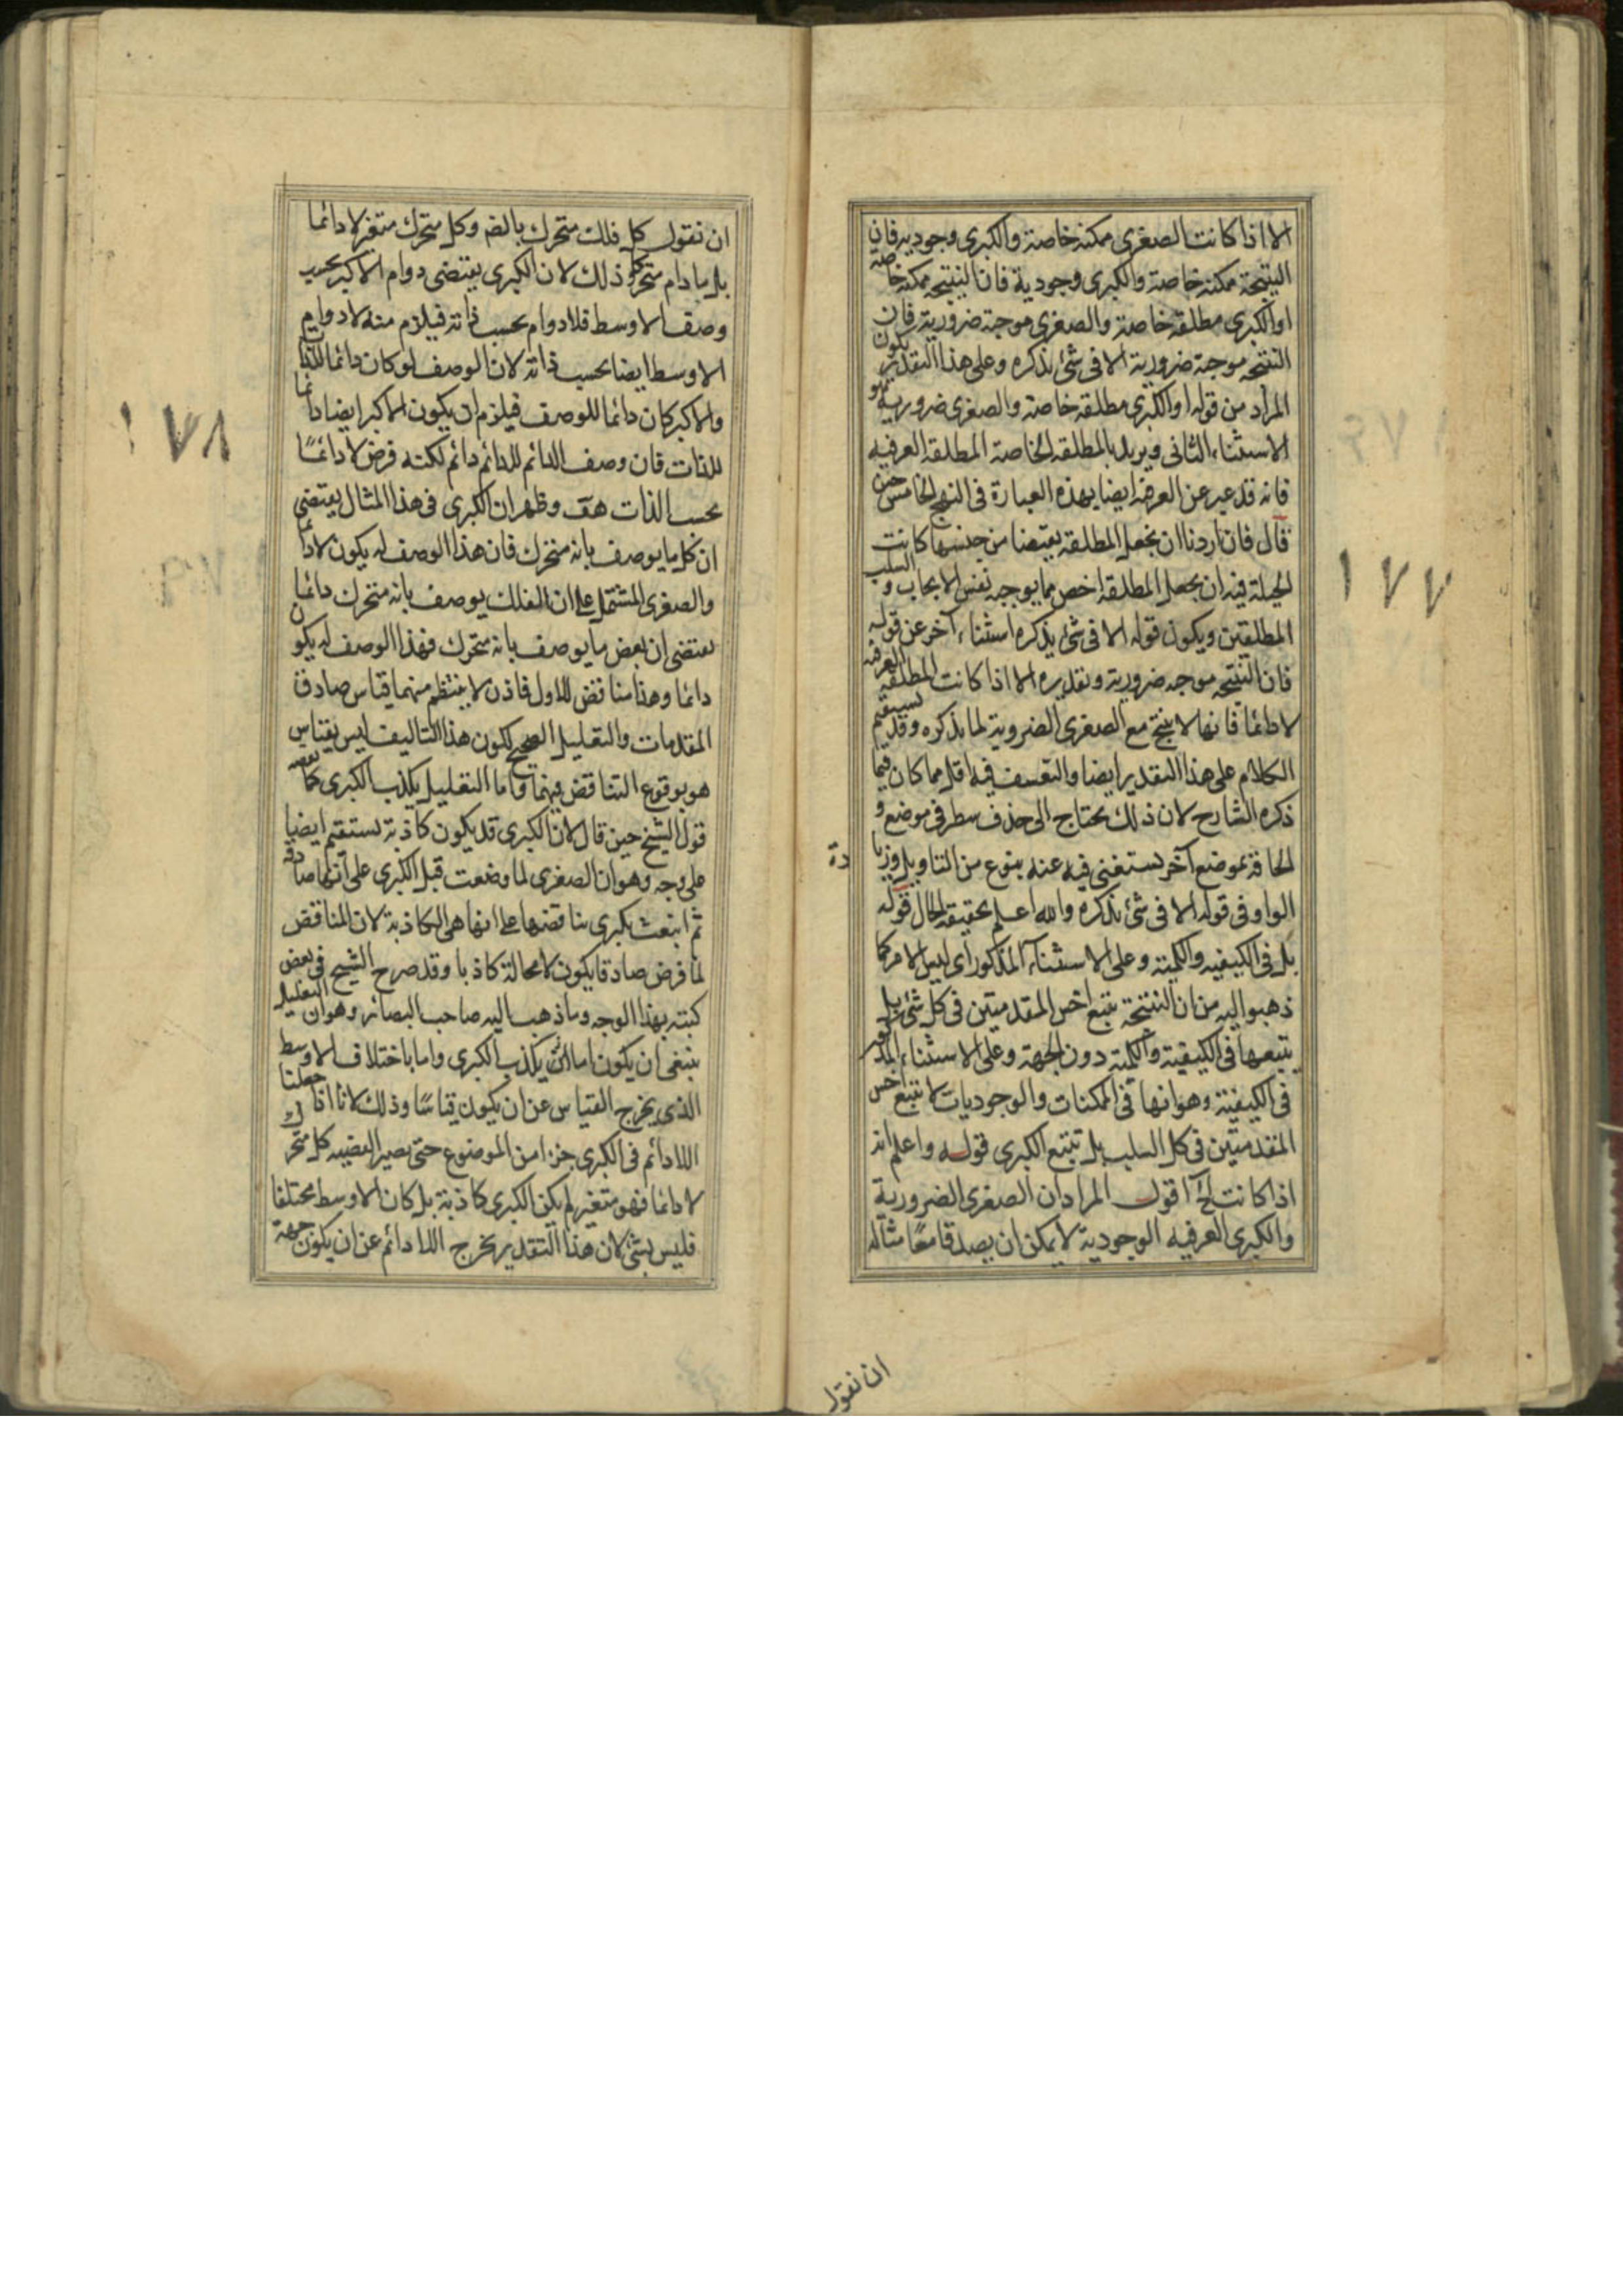 الا اذا كانت الصغرى ممكنة خاصة والكبرى وجودية فان
النتيجة ممكنة خاصة والكبرى وجودية فان النتيجة ممكنة خاصة
او الكبرى مطلقة خاصة والصغرى موجبة ضرورية فان
النتيجة موجبة ضرورية الا فى شئ نذكره وعلى هذا التقدير يكون
المراد من قوله او الكبرى مطلقة خاصة والصغرى ضرورية هو
الاستثناء الثانى ويريد بالمطلقة الخاصة المطلقة العرفيه
فانه قد عبر عن العرفية ايضا بهذه العبارة فى النهج الخامس حين
قال فان اردنا ان نجعل المطلقة نقيضا من جنسها كانت
الحيلة فيه ان نجعل المطلقة اخص مما يوجبه نفس الايجاب والسلب
المطلقين ويكون قوله الا فى شئ نذكره استثناء آخر عن قوله
فان النتيجة موجبه ضرورية وتقديره الا اذا كانت المطلقة العرفية
لا دائما فانها لا ينتج مع الصغرى الضروية لما نذكره وقد يستقيم
الكلام على هذا التقدير ايضا والتعسف فيه اقل مما كان فيما
ذكره الشارح لان ذلك يحتاج الى حذف سطر فى موضع و
الحاقه بموضع آخر يستغنى فيه عنه بنوع من التاويل وزيا
دة
الواو فى قوله الا فى شئ نذكره والله اعلم بحقيقة الحال قوله
بل فى الكيفيه والكمية وعلى الاستثناء المذكور اى ليس الامر كما
ذهبوا اليه من ان النتيجة تتبع اخس المقدمتين فى كل شئ بل
يتبعها فى الكيفية والكمية دون الجهة وعلى الاستثناء المذكور
فى الكيفية وهو انها فى الممكنات والوجوديات لا تتبع اخس
المقدمتين فى كل السلب بل تتبع الكبرى قوله واعلم انه
اذا كانت الخ اقول المراد ان الصغرى الضرورية
والكبرى العرفيه الوجودية لا يمكن ان يصدقا معًا مثاله
ان نقول
١٧٧
ان نقول كل فلك متحرك بالضرورة وكل متحرك متغير لا دائما
بل ما دام متحركا وذلك لان الكبرى يقتضى دوام الاكبر بحسب
وصف الاوسط فلا دوام بحسب ذاته فيلزم منه لا دوام
الاوسط ايضا بحسب ذاته لان الوصف لو كان دائما للذات
والاكبر كان دائما للوصف فيلزم ان يكون الاكبر ايضا دائما
للذات فان وصف الدائم للدائم دائم لكنه فرض لا دائمًا
بحسب الذات هف وظهر ان الكبرى فى هذا المثال يقتضى
ان كل ما يوصف بانه متحرك فان هذا الوصف له يكون لا دائما
والصغرى المشتمل على ان الفلك يوصف بانه متحرك دائما
يقتضى ان بعض ما يوصف بانه متحرك فهذا الوصف له يكون
دائما وهذا مناقض للاول فاذن لا ينتظم منهما قياس صادق
المقدمات والتعليل الصحيح لكون هذا التاليف ليس بقياس
هو بوقوع التناقض فيهما واما التعليل بكذب الكبرى كما
قول الشيخ حين قال لان الكبرى قد يكون كاذبة يستقيم ايضا
على وجه وهو ان الصغرى لما وضعت قبل الكبرى على انها صادقة
ثم اتبعت بكبرى يناقضها على انها هى الكاذبة لان المناقض
لما فرض صادقا يكون لا محالة كاذبا وقد صرح الشيخ فى بعض
كتبه بهذا الوجه وما ذهب اليه صاحب البصائر وهو ان التعليل
ينبغى ان يكون اما بكذب الكبرى واما باختلاف الاوسط
الذى يخرج القياس عن ان يكون قياسًا وذلك لانا اذا جعلنا
اللادائم فى الكبرى جزءا من الموضوع حتى يصير القضيه كل متحرك
لا دائما فهو متغير لم يكن الكبرى كاذبة بل كان الاوسط مختلفا
فليس بشئ لان هذا التقدير يخرج اللادائم عن ان يكون جهة
١٧٨